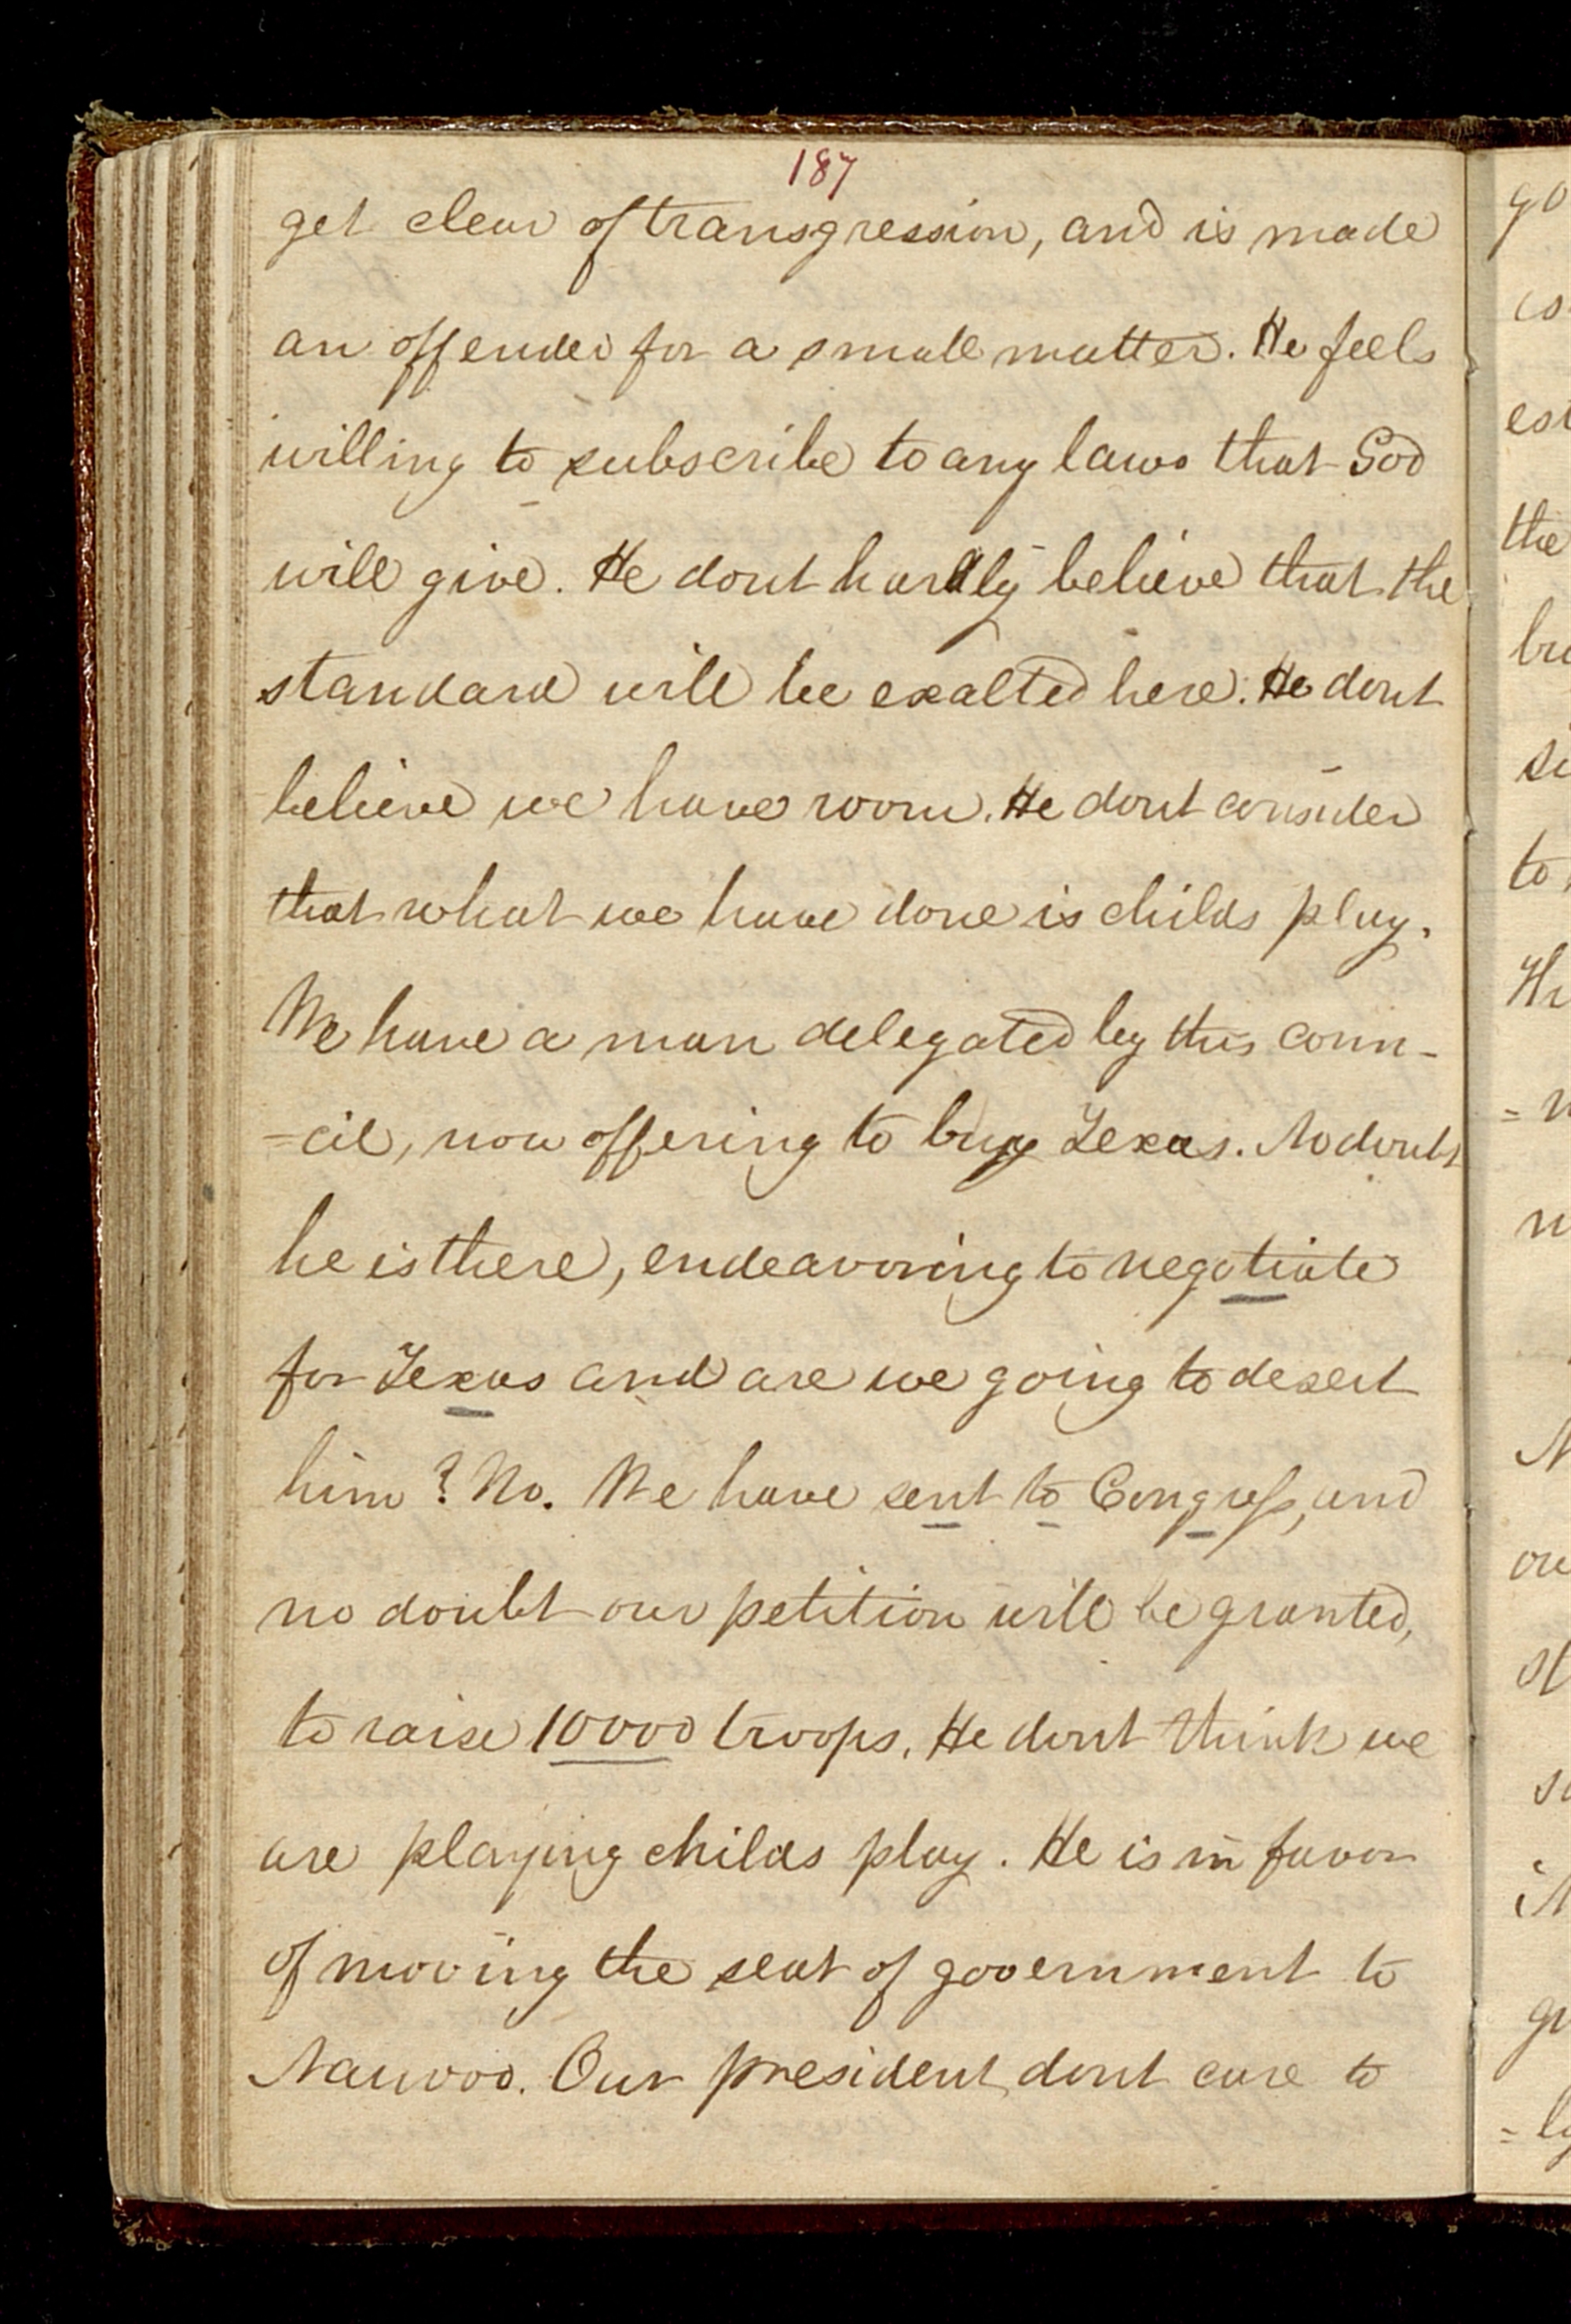 187
get clear of transgression, and is made
an offender for a small matter. He feels
willing to subscribe to any laws that God
will give. He dont hardly believe that the
standard will be exalted here. He dont
believe we have room. He dont consider
that what we have done is childs play.
We have a man delegated by this coun-
=cil, now offering to buy Texas. No doubt
he is there, endeavoring to negotiate
for Texas and are we going to desert
him? No. We have sent to Congress, and
no doubt our petition will be granted,
to raise 10000 troops. He dont think we
are playing childs play. He is in favor
of moving the seat of government to
Nauvoo. Our president dont care to